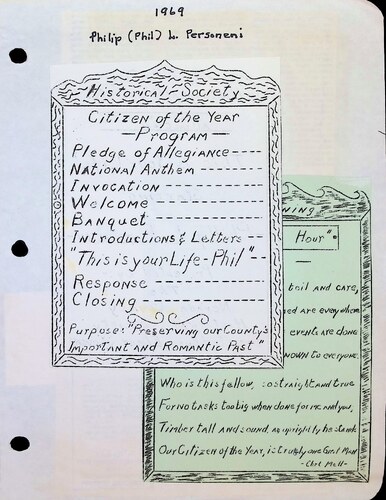 1969
Philip (Phil) L. Personeni
Historical Society
Citizen of the Year
—Program—
Pledge of Allegiance----
National Anthem -------
Invocation ----------
Welcome ----------
Banquet ----------
Introductions & Letters --
"This is your Life-Phil"--
Response ----------
Closing ----------
Purpose: "Preserving our County's
Important and Romantic Past"
Hour"
toil and care,
are everywhere
events are done
to everyone.
Who is this fellow, so straight and true
For no tasks too big when done for me and you,
Timber tall and sound, as upright he
Our Citizen of the Year, is truly one Man